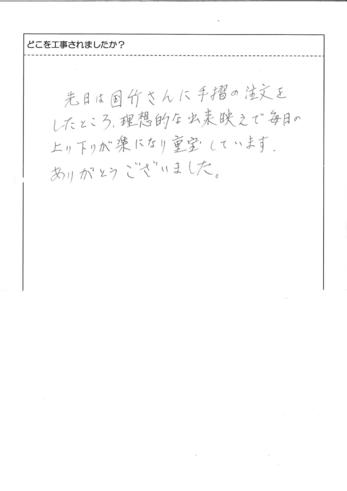 どこを工事されましたか？
先日は国竹さんに手摺の注文を
したところ、理想的な出来映えで毎日の
上り下りが楽になり重宝しています。
ありがとうございました。